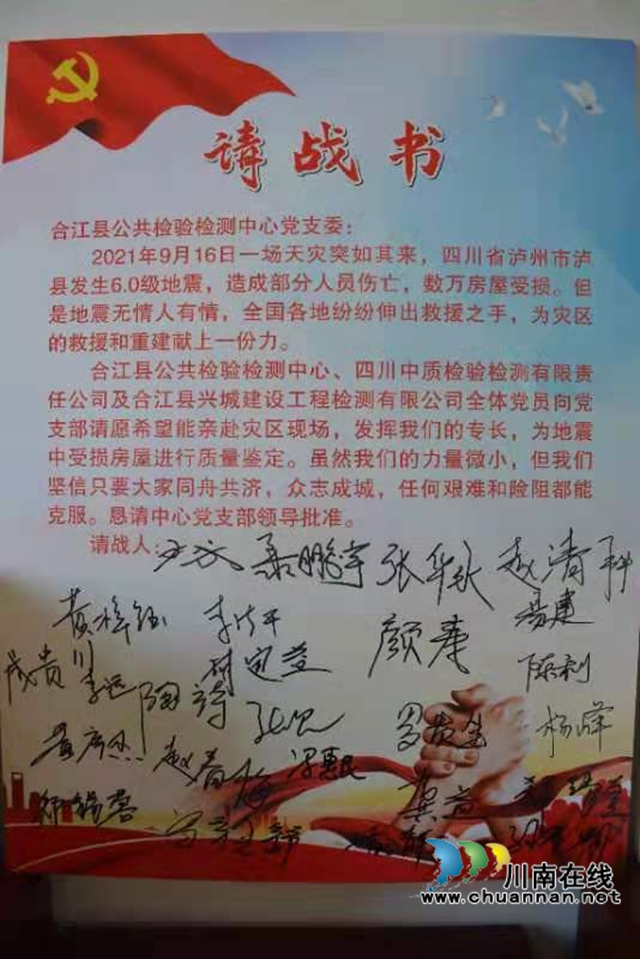 请战书
合江县公共检验检测中心党支委：
2021年9月16日一场天灾突如其来，四川省泸州市泸
县发生6.0级地震，造成部分人员伤亡，数万房屋受损。但
是地震无情人有情，全国各地纷纷伸出救援之手，为灾区
的救援和重建献上一份力。
合江县公共检验检测中心、四川中质检验检测有限责
任公司及合江县兴城建设工程检测有限公司全体党员向党
支部请愿希望能亲赴灾区现场，发挥我们的专长，为地震
中受损房屋进行质量鉴定。虽然我们的力量微小，但我们
坚信只要大家同舟共济，众志成城，任何艰难和险阻都能
克服。恳请中心党支部领导批准。
请战人： 聂鹏宇 张华永 赵清
易建
成贵川 李远 陶诗 陈利
赵春梅 罗贵生 杨峰
龚益
川南在线
www.chuannan.net